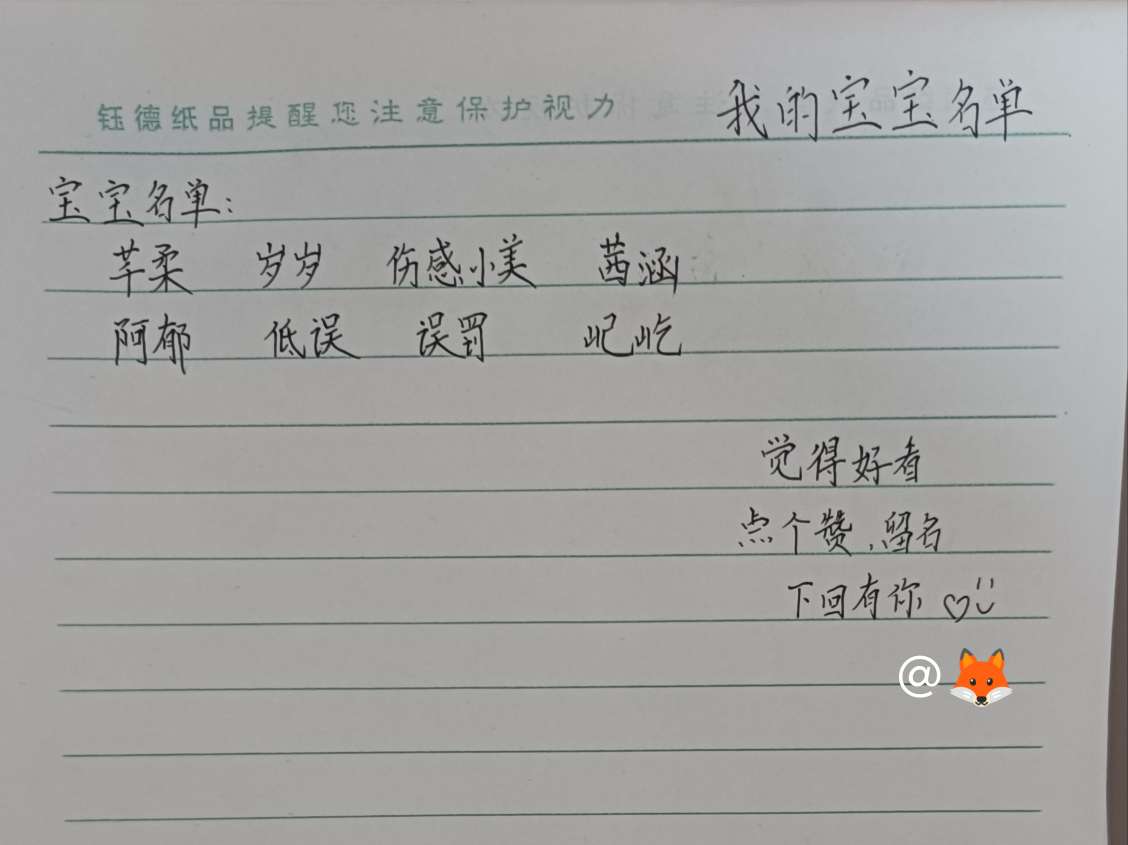 钰德纸品提醒您注意保护视力 我的宝宝名单
宝宝名单:
芊柔 岁岁 伤感小美 茜涵
阿郁 低误 误罚 屺屹
觉得好看
点个赞,留名
下回有你
@